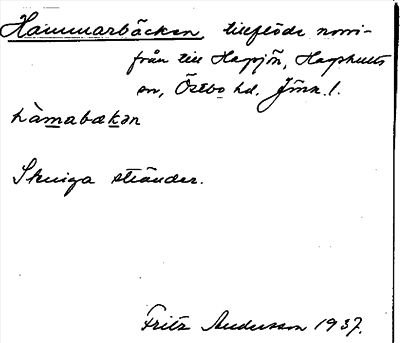 Hammarbäcken, tillflöde norri-
från till Hagsjön, Hagshults
sn, Östbo hd. Jönk. l.
hàmabækən
Steniga stränder.
Fritz Andersson 1937.